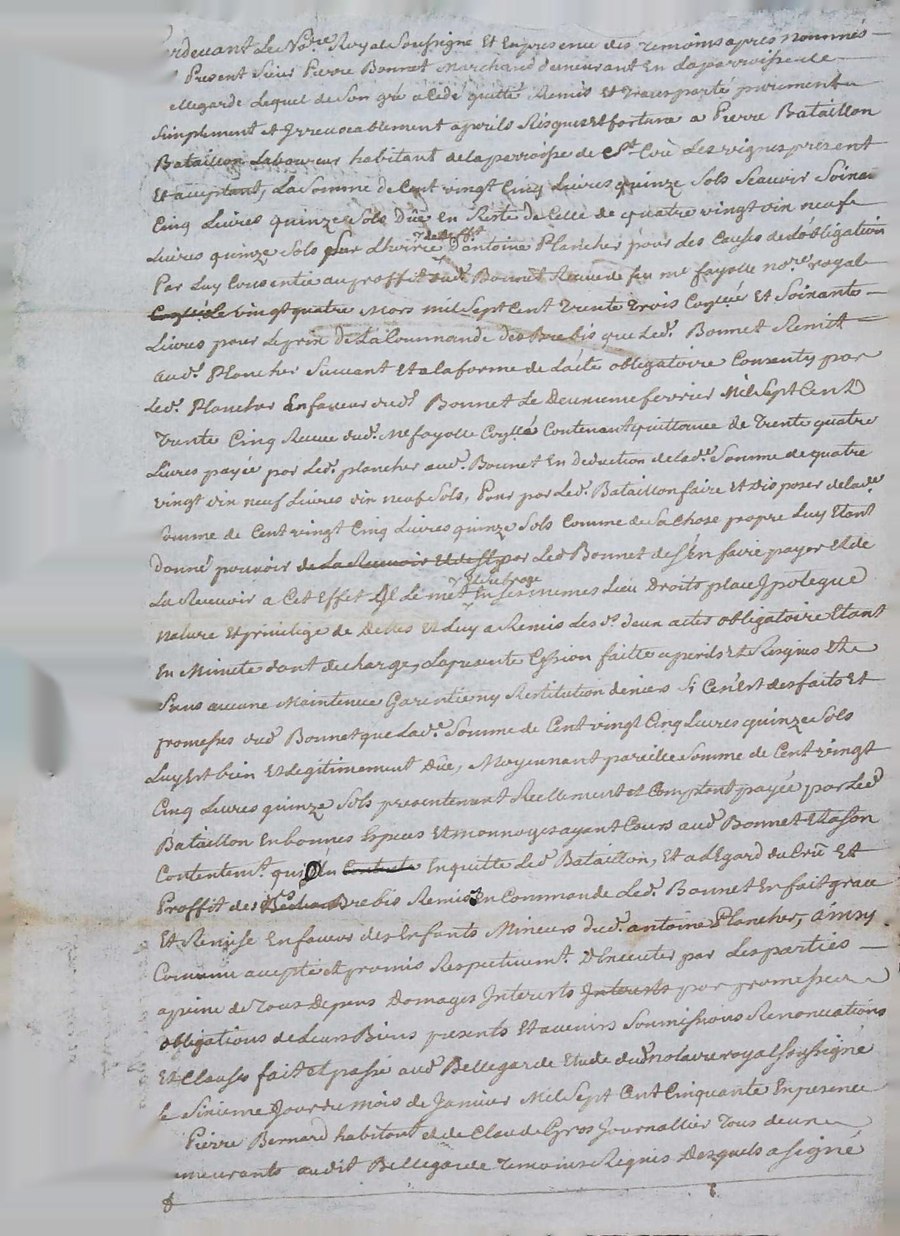 ardevant Le No.re Royal Soussigné Et En presence des temoins apres nommés
Present Sieur Pierre Bonnet Marchand demeurant En La parroisse de
ellegarde Lequel de Son gré a Cedé quitté Remis Et Transporté purement
Simplement et Irrevocablement a perils Risques et fortune a Pierre Bataillon
Bataillon Laboureur habitant de la parroisse de St. Les vignes present
Et acceptant, La Somme de Cent vingt Cinq Livres quinze Sols Scavoir Soixan
Cinq Livres quinze Sols Düe En Reste de Celle de quatre vingt dix neuf
Livres quinze Sols par L'hoirie d'antoine Plancher pour Les Causes de L'obligation
Par Luy Consentie au proffit dud. Bonnet Receue feu me fayolle no.re royal
Le vingt quatre Mars mil Sept Cent Trente trois Et Soixante
Livres pour Le prix de La Commande des Brebis que Led. Bonnet Remit
aud. Plancher Suivant Et a la forme de L'acte obligatoire Consenty par
Led. Plancher En faveur dud. Bonnet Le Deuxieme fevrier Mil Sept Cent
Trente Cinq Receue dud. Me fayolle Contenant quittance de Trente quatre
Livres payée par Led. plancher aud. Bonnet En deduction de Lad.e Somme de quatre
vingt dix neuf Livres dix neuf Sols, Pour par Led. Bataillon faire Et disposer de Lad.e
Somme de Cent vingt Cinq Livres quinze Sols Comme de Sa Chose propre Luy Etant
donné pouvoir de La Recevoir par Led Bonnet de S'En faire payer Et de
La Recevoir a Cet Effet Il Le met Et Subroge En Ses memes Lieu Droits place Ipoteque
Nature Et privilege de Dettes Et Luy a Remis Les d. deux actes obligatoire Etant
En Minute dont decharge, La presente Cession faitte a perils Et Risques Et
Sans aucune Maintenue Garentie ny Restitution deniers Si Ce n'Est des faits Et
promesses dud Bonnet que Lad.e Somme de Cent vingt Cinq Livres quinze Sols
Luy Est bien Et Legitimement Düe, Moyennant pareille Somme de Cent vingt
Cinq Livres quinze Sols presentement Reellement et Comptant payée par Led
Bataillon En bonnes Especes Et monnoyes ayant Cours aud Bonnet Et a Son
Contentem.t qui En quitte Led Bataillon, Et a L'Egard du Crü Et
Proffit des Brebis Remis En Commande Led. Bonnet En fait grace
Et Remise En faveur des Enfants Mineurs dud. antoine Plancher, ainsy
Convenu accepté et promis Respectivem.t D'Executer par Les parties
a peine de Tous Depens Domages Interests Interests par promesses
obligations de Leurs Biens presents Et avenirs Soumissions Renonciations
Et Clauses fait et passé aud Bellegarde Etude dud notaire royal Soussigné
Le Sixieme Jour du mois de Janvier Mil Sept Cent Cinquante En presence
Pierre Bernard habitant et de Claude Gros Journallier Tous deux
meurants audit Bellegarde Temoins Requis Desquels a Signé